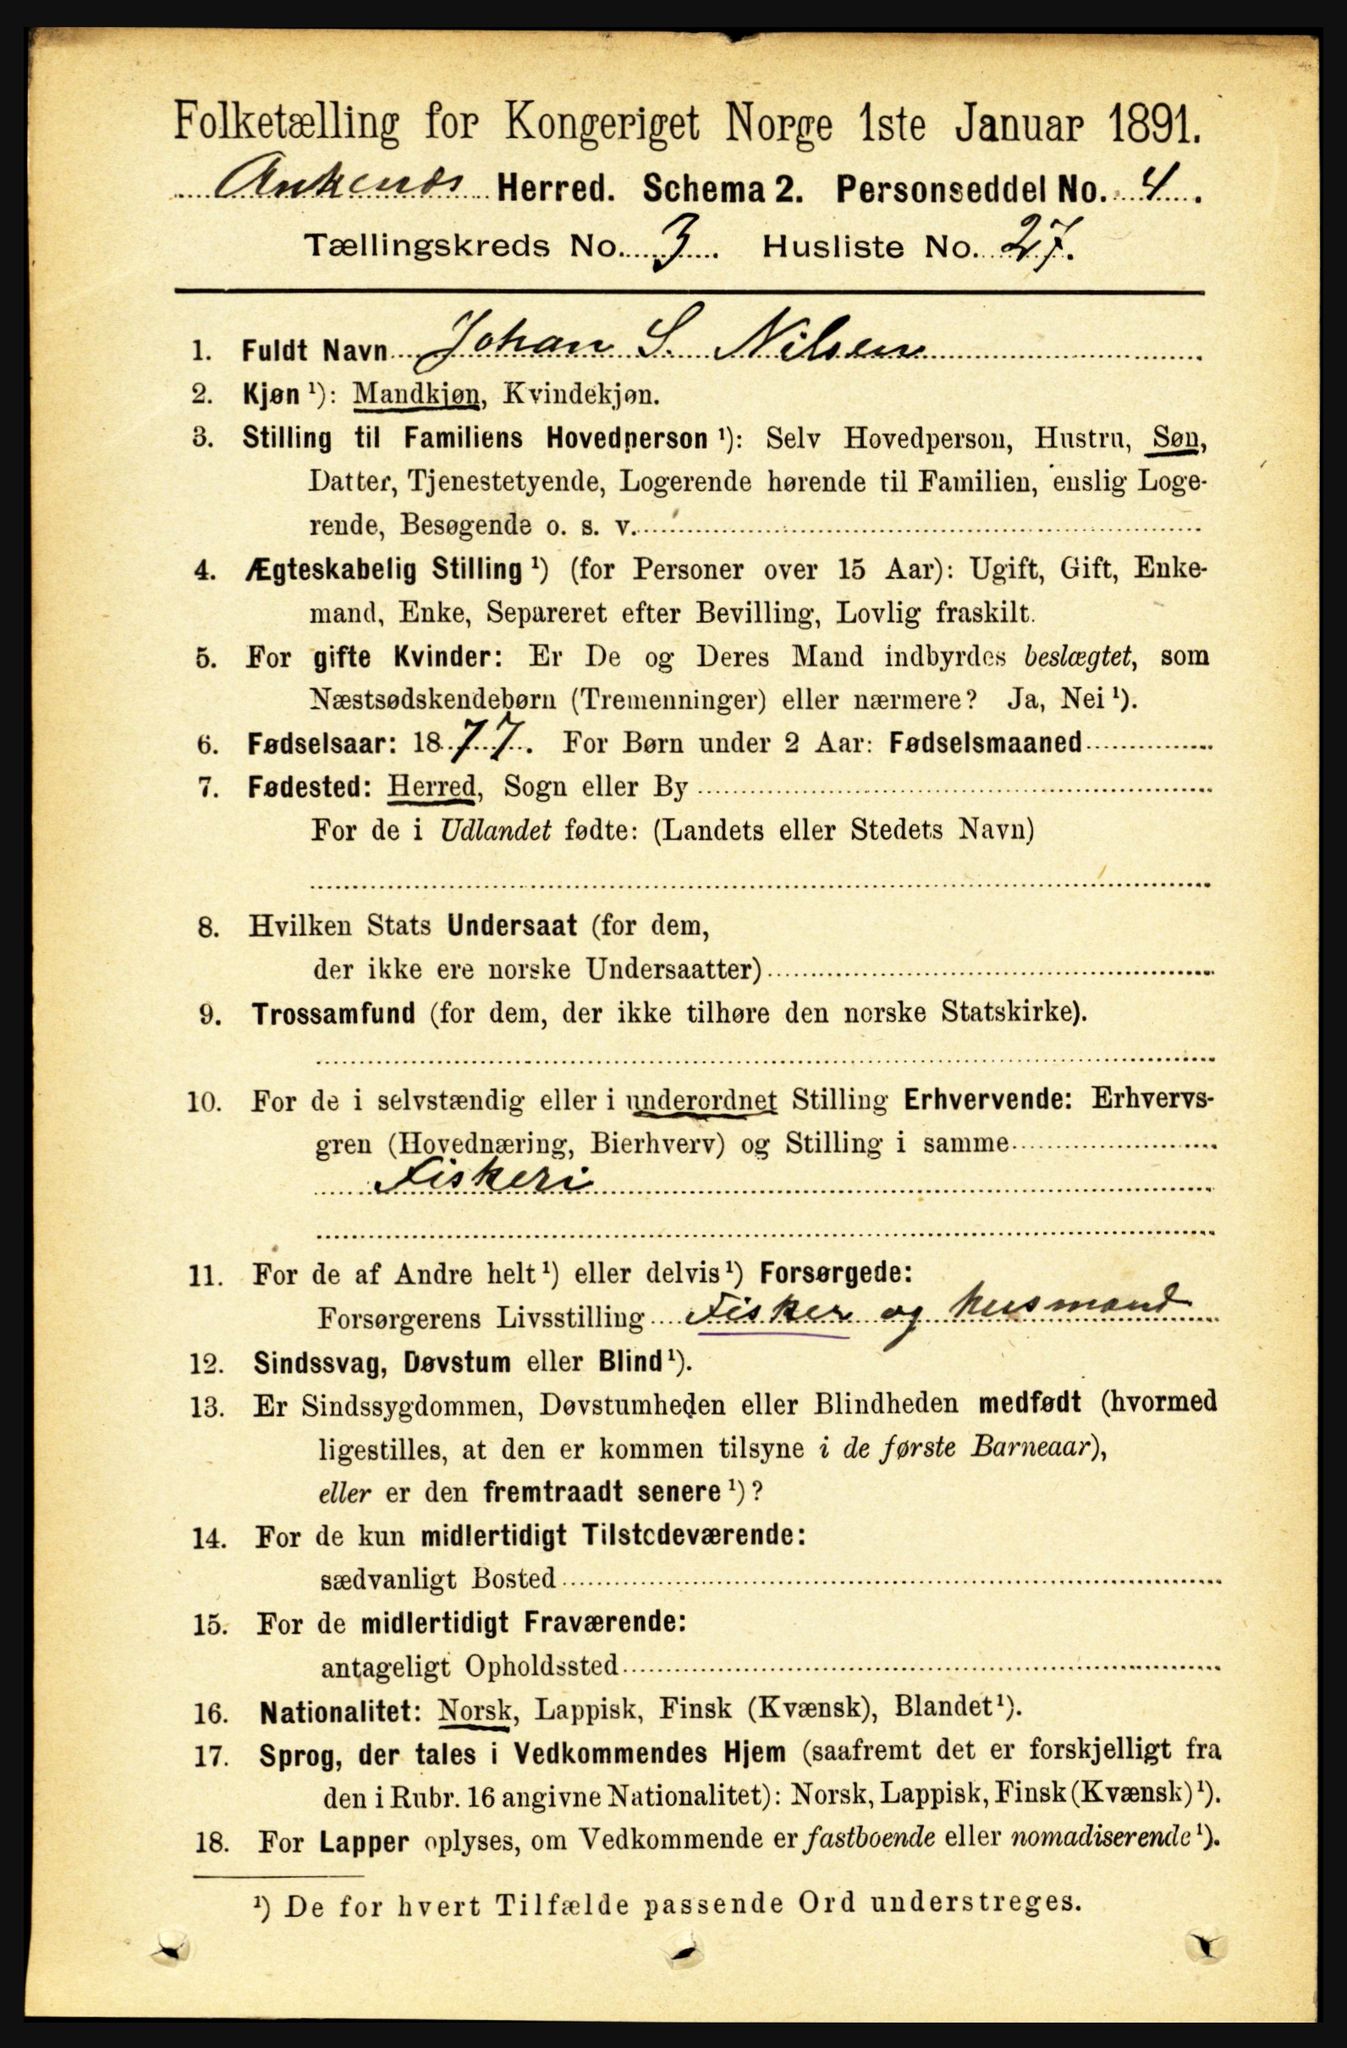 Folketælling for Kongeriget Norge 1ste Januar 1891.
Ankenes Herred. Schema 2. Personseddel No. 4.
Tællingskreds No. 3. Husliste No. 27.
1. Fuldt Navn Johan S. Nilsen
2. Kjøn ¹): Mandkjøn, Kvindekjøn.
3. Stilling til Familiens Hovedperson ¹): Selv Hovedperson, Hustru, Søn,
Datter, Tjenestetyende, Logerende hørende til Familien, enslig Loge-
rende, Besøgende o. s. v.
4. Ægteskabelig Stilling ¹) (for Personer over 15 Aar): Ugift, Gift, Enke-
mand, Enke, Separeret efter Bevilling, Lovlig fraskilt.
5. For gifte Kvinder: Er De og Deres Mand indbyrdes beslægtet, som
Næstsødskendebørn (Tremenninger) eller nærmere? Ja, Nei ¹).
6. Fødselsaar: 1877. For Børn under 2 Aar: Fødselsmaaned
7. Fødested: Herred, Sogn eller By
For de i Udlandet fødte: (Landets eller Stedets Navn)
8. Hvilken Stats Undersaat (for dem,
der ikke ere norske Undersaatter)
9. Trossamfund (for dem, der ikke tilhøre den norske Statskirke).
10. For de i selvstændig eller i underordnet Stilling Erhvervende: Erhvervs-
gren (Hovednæring, Bierhverv) og Stilling i samme
Fiskeri
11. For de af Andre helt ¹) eller delvis ¹) Forsørgede:
Forsørgerens Livsstilling Fisker og husmand
12. Sindssvag, Døvstum eller Blind ¹).
13. Er Sindssygdommen, Døvstumheden eller Blindheden medfødt (hvormed
ligestilles, at den er kommen tilsyne i de første Barneaar),
eller er den fremtraadt senere ¹)?
14. For de kun midlertidigt Tilstedeværende:
sædvanligt Bosted
15. For de midlertidigt Fraværende:
antageligt Opholdssted
16. Nationalitet: Norsk, Lappisk, Finsk (Kvænsk), Blandet ¹).
17. Sprog, der tales i Vedkommendes Hjem (saafremt det er forskjelligt fra
den i Rubr. 16 angivne Nationalitet): Norsk, Lappisk, Finsk (Kvænsk) ¹).
18. For Lapper oplyses, om Vedkommende er fastboende eller nomadiserende ¹).
¹) De for hvert Tilfælde passende Ord understreges.